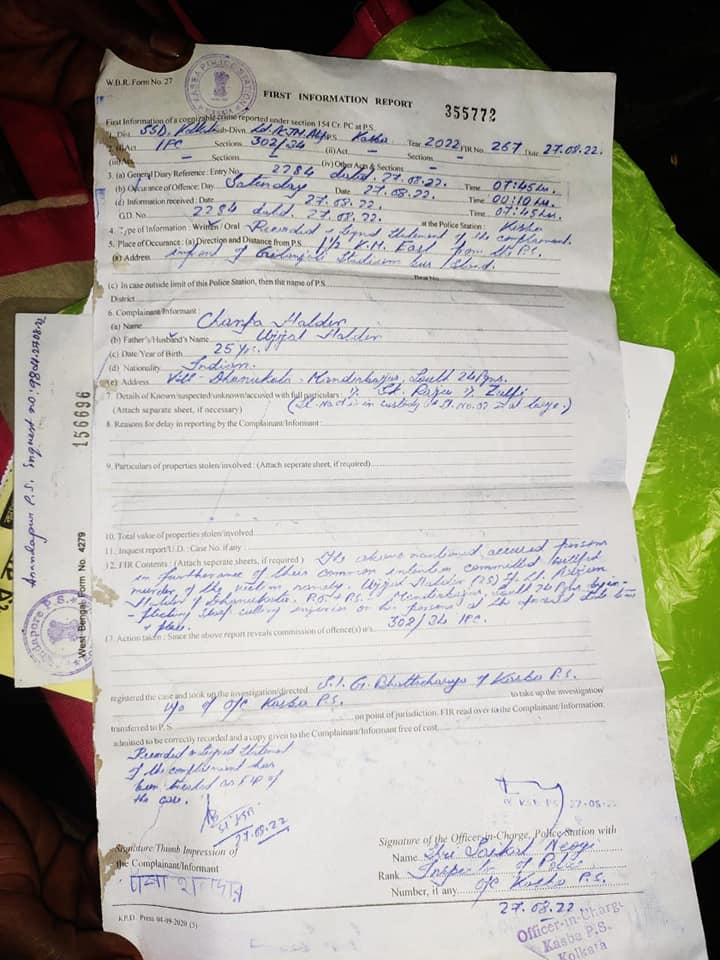 W.B.R. Form No. 27
KASBA POLICE STATION
FIRST INFORMATION REPORT
355772
First Information of a cognizable crime reported under section 154 Cr. PC at P.S.
1. Dist. SSD, Kolkata Sub-Divn. P.S. Kasba Year 2022 FIR No. 267 Date 27.08.22.
2. (i) Act IPC Sections 302/34 (ii) Act. – Sections –
(iii) Act – Sections – (iv) Other Acts & Sections –
3. (a) General Diary Reference : Entry No. 2284 dated. 27.08.22. Time 07:45 hrs.
(b) Occurance of Offence : Day Saturday Date 27.08.22. Time 00:10 hrs.
(d) Information received : Date 27.08.22. Time 07:45 hrs.
G.D. No. 2284 dated. 27.08.22. at the Police Station : Kasba
4. Type of Information : Written / Oral Recorded & Signed Statement of the complainant.
5. Place of Occurance : (a) Direction and Distance from P.S. 1½ K.M. East from the P.S.
(a) Address infront of Gitanjali Stadium bus stand.
(c) In case outside limit of this Police Station, then the name of P.S.
District
6. Complainant / Informant :
(a) Name Champa Halder
(b) Father's/Husband's Name Ujjal Halder
(c) Date Year of Birth 25 yrs.
(d) Nationality Indian.
(e) Address Vill- Dhanukata. Mandirbazar, South 24 Pgs.
7. Details of Known/suspected/unknown/accused with full particulars : 1. Sk. Raju 2. Zulfi
(Attach separate sheet, if necessary) (Sl. No 01 is in custody & Sl. No. 02 is at large.)
8. Reasons for delay in reporting by the Complainant/Informant :
9. Particulars of properties stolen/involved : (Attach seperate sheet, if required)
10. Total value of properties stolen/involved
11. Inquest report/U.D. : Case No. if any
12. FIR Contents : (Attach seperate sheets, if required) The above mentioned accused persons
in furtherance of their common intention committed
murder of the victim namely Ujjal Halder (25) S/o Lt.
Halder of Dhanukata, P.O + P.S. Mandirbazar, South 24 Pgs by in-
-flicting sharp cutting injuries on his person at the aforesaid date
& place. 302/34 IPC.
13. Action taken : Since the above report reveals commission of offence(s) u/s
registered the case and took up the investigation/directed S.I. G. Bhattacharya of Kasba P.S.
u/o of o/c Kasba P.S. to take up the investigation
transferred to P.S. on point of jurisdiction. FIR read over to the Complainant/Information
admitted to be correctly recorded and a copy given to the Complainant/Informant free of cost.
Recorded & Signed Statement
of the complainant has
been treated as FIR of
the case.
27.08.22
27.08.22
Signature/Thumb Impression of
the Complainant/Informant
চম্পা হালদার
Signature of the Officer-in-Charge, Police Station with
Name
Rank Inspector of Police
Number, if any O/C Kasba P.S.
27.08.22.
Officer-in-Charge
Kasba P.S.
Kolkata
K.P.D. Press 04-09-2020 (5)
156696
West Bengal Form No. 4279
Anandapur P.S. Inquest no: